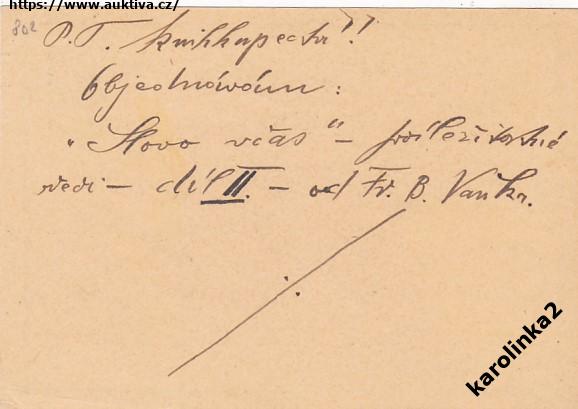 https://www.auktiva.cz/
802
P.T. knihkupectví!
Objednávám:
„Slovo včas" – příležitostné
řeči – díl II. – od Fr. B. Vaňka.
karolinka2